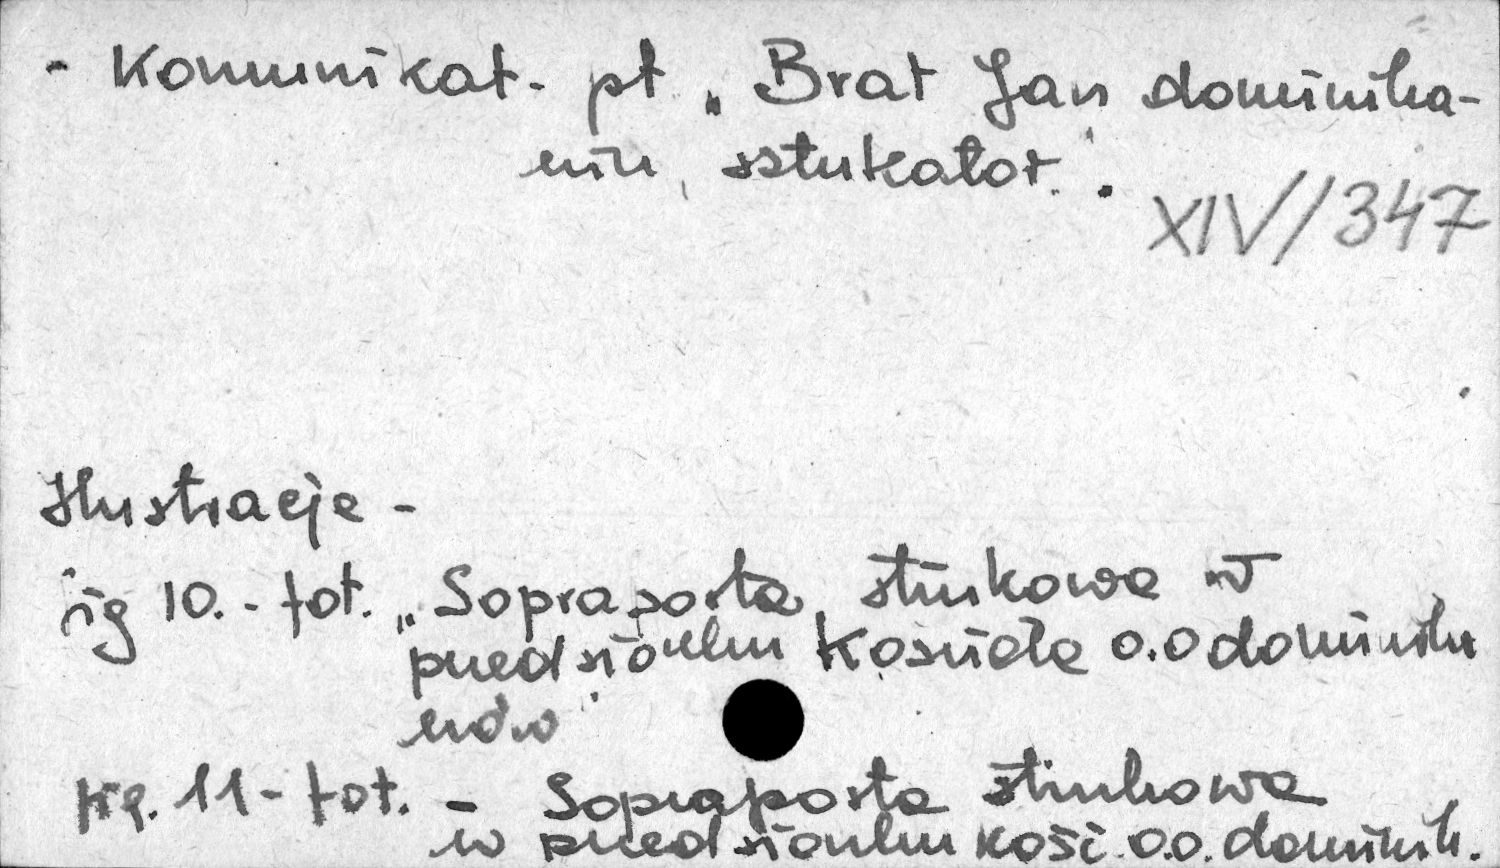 - Komunikat - pt „Brat Jan dominika-
nin, sztukator".
XIV/347
Ilustracje -
rig 10. - fot. „Sopraporta stiukowa w
przedsionku kościoła o.o dominika
nów"
fig. 11 - fot. - Sopraporta stiukowa
w przedsionku kośc. o.o. dominik.